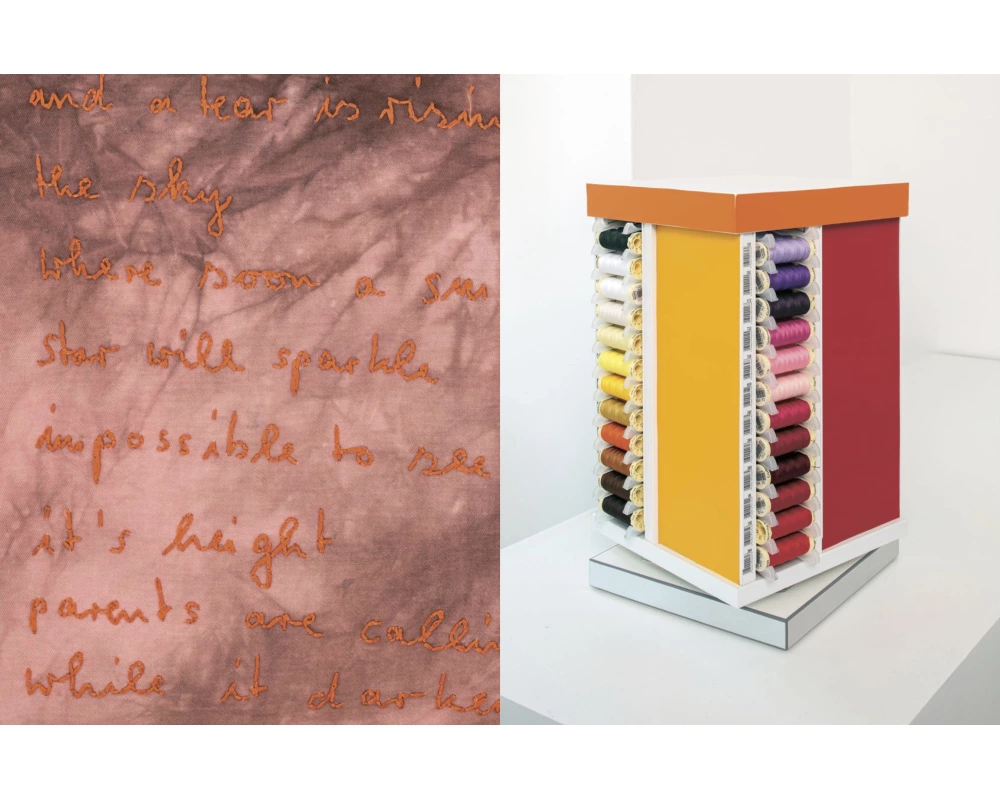 and a tear is risin
the sky
where soon a sm
star will sparkle
impossible to see
it's height
parents are callin
while it darke